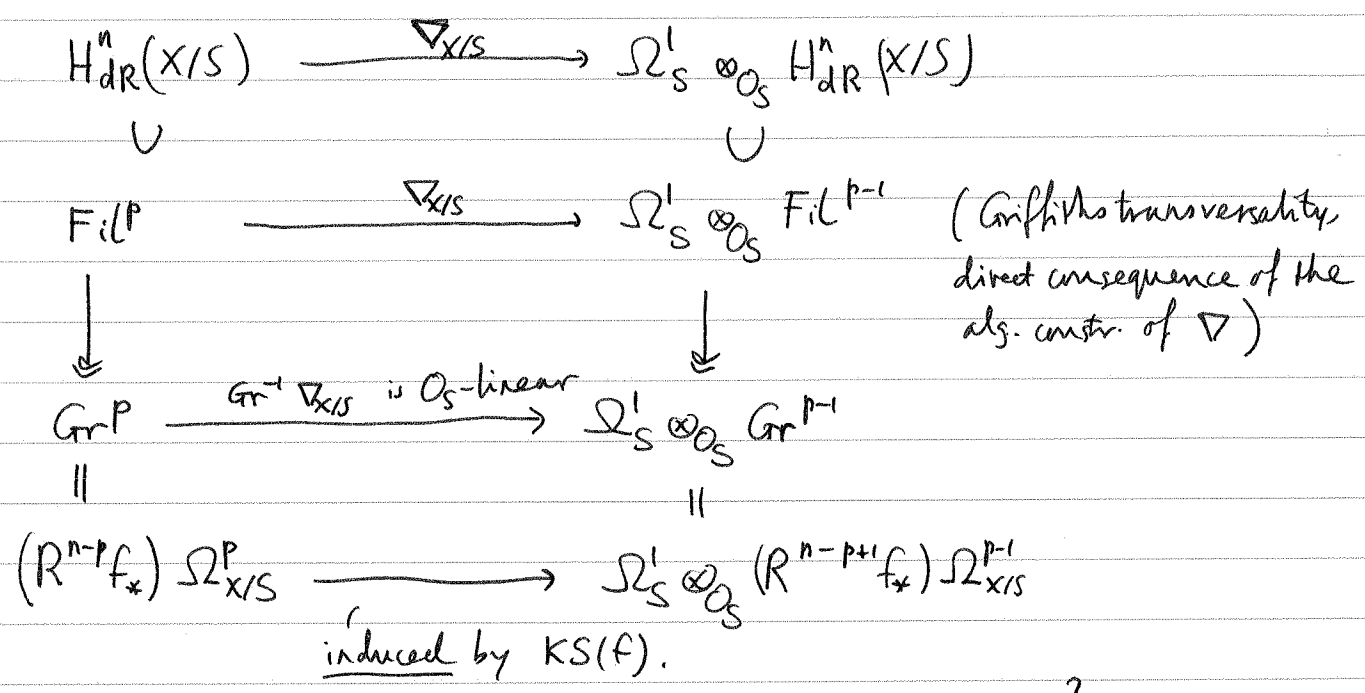 ∇_{X/S}
H^n_{dR}(X/S) ⟶ Ω^1_S ⊗_{O_S} H^n_{dR}(X/S)
∪ ∪
∇_{X/S}
Fil^p ⟶ Ω^1_S ⊗_{O_S} Fil^{p-1} (Griffiths transversality,
direct consequence of the
alg. constr. of ∇)
Gr^{-1} ∇_{X/S} is O_S-linear
Gr^p ⟶ Ω^1_S ⊗_{O_S} Gr^{p-1}
|| ||
(R^{n-p}f_*) Ω^p_{X/S} ⟶ Ω^1_S ⊗_{O_S} (R^{n-p+1}f_*) Ω^{p-1}_{X/S}
induced by KS(f).